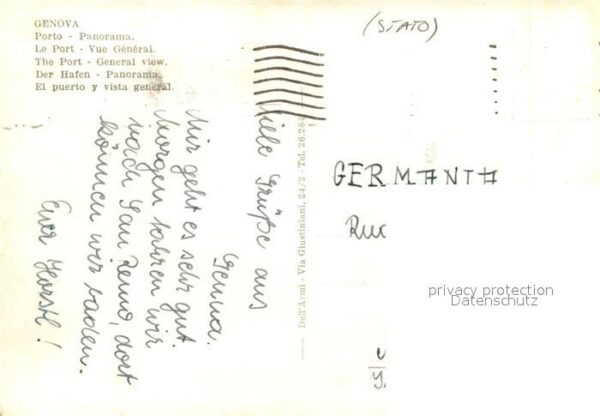 GENOVA
Porto - Panorama.
Le Port - Vue Général.
The Port - General view.
Der Hafen - Panorama.
El puerto y vista general.
(STATO)
Viele Grüße aus
Genua.
Mir geht es sehr gut.
Morgen fahren wir
nach San Remo, dort
können wir baden.
Euer Horstl!
Dell'Acmi - Via Giustiniani, 24/2 - Tel. 26.284
GERMANIA
privacy protection
Datenschutz